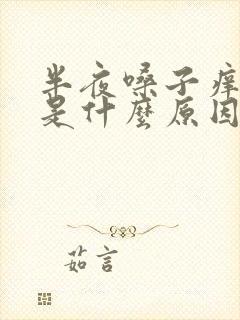 半夜嗓子痒
是什麼原因
茹言